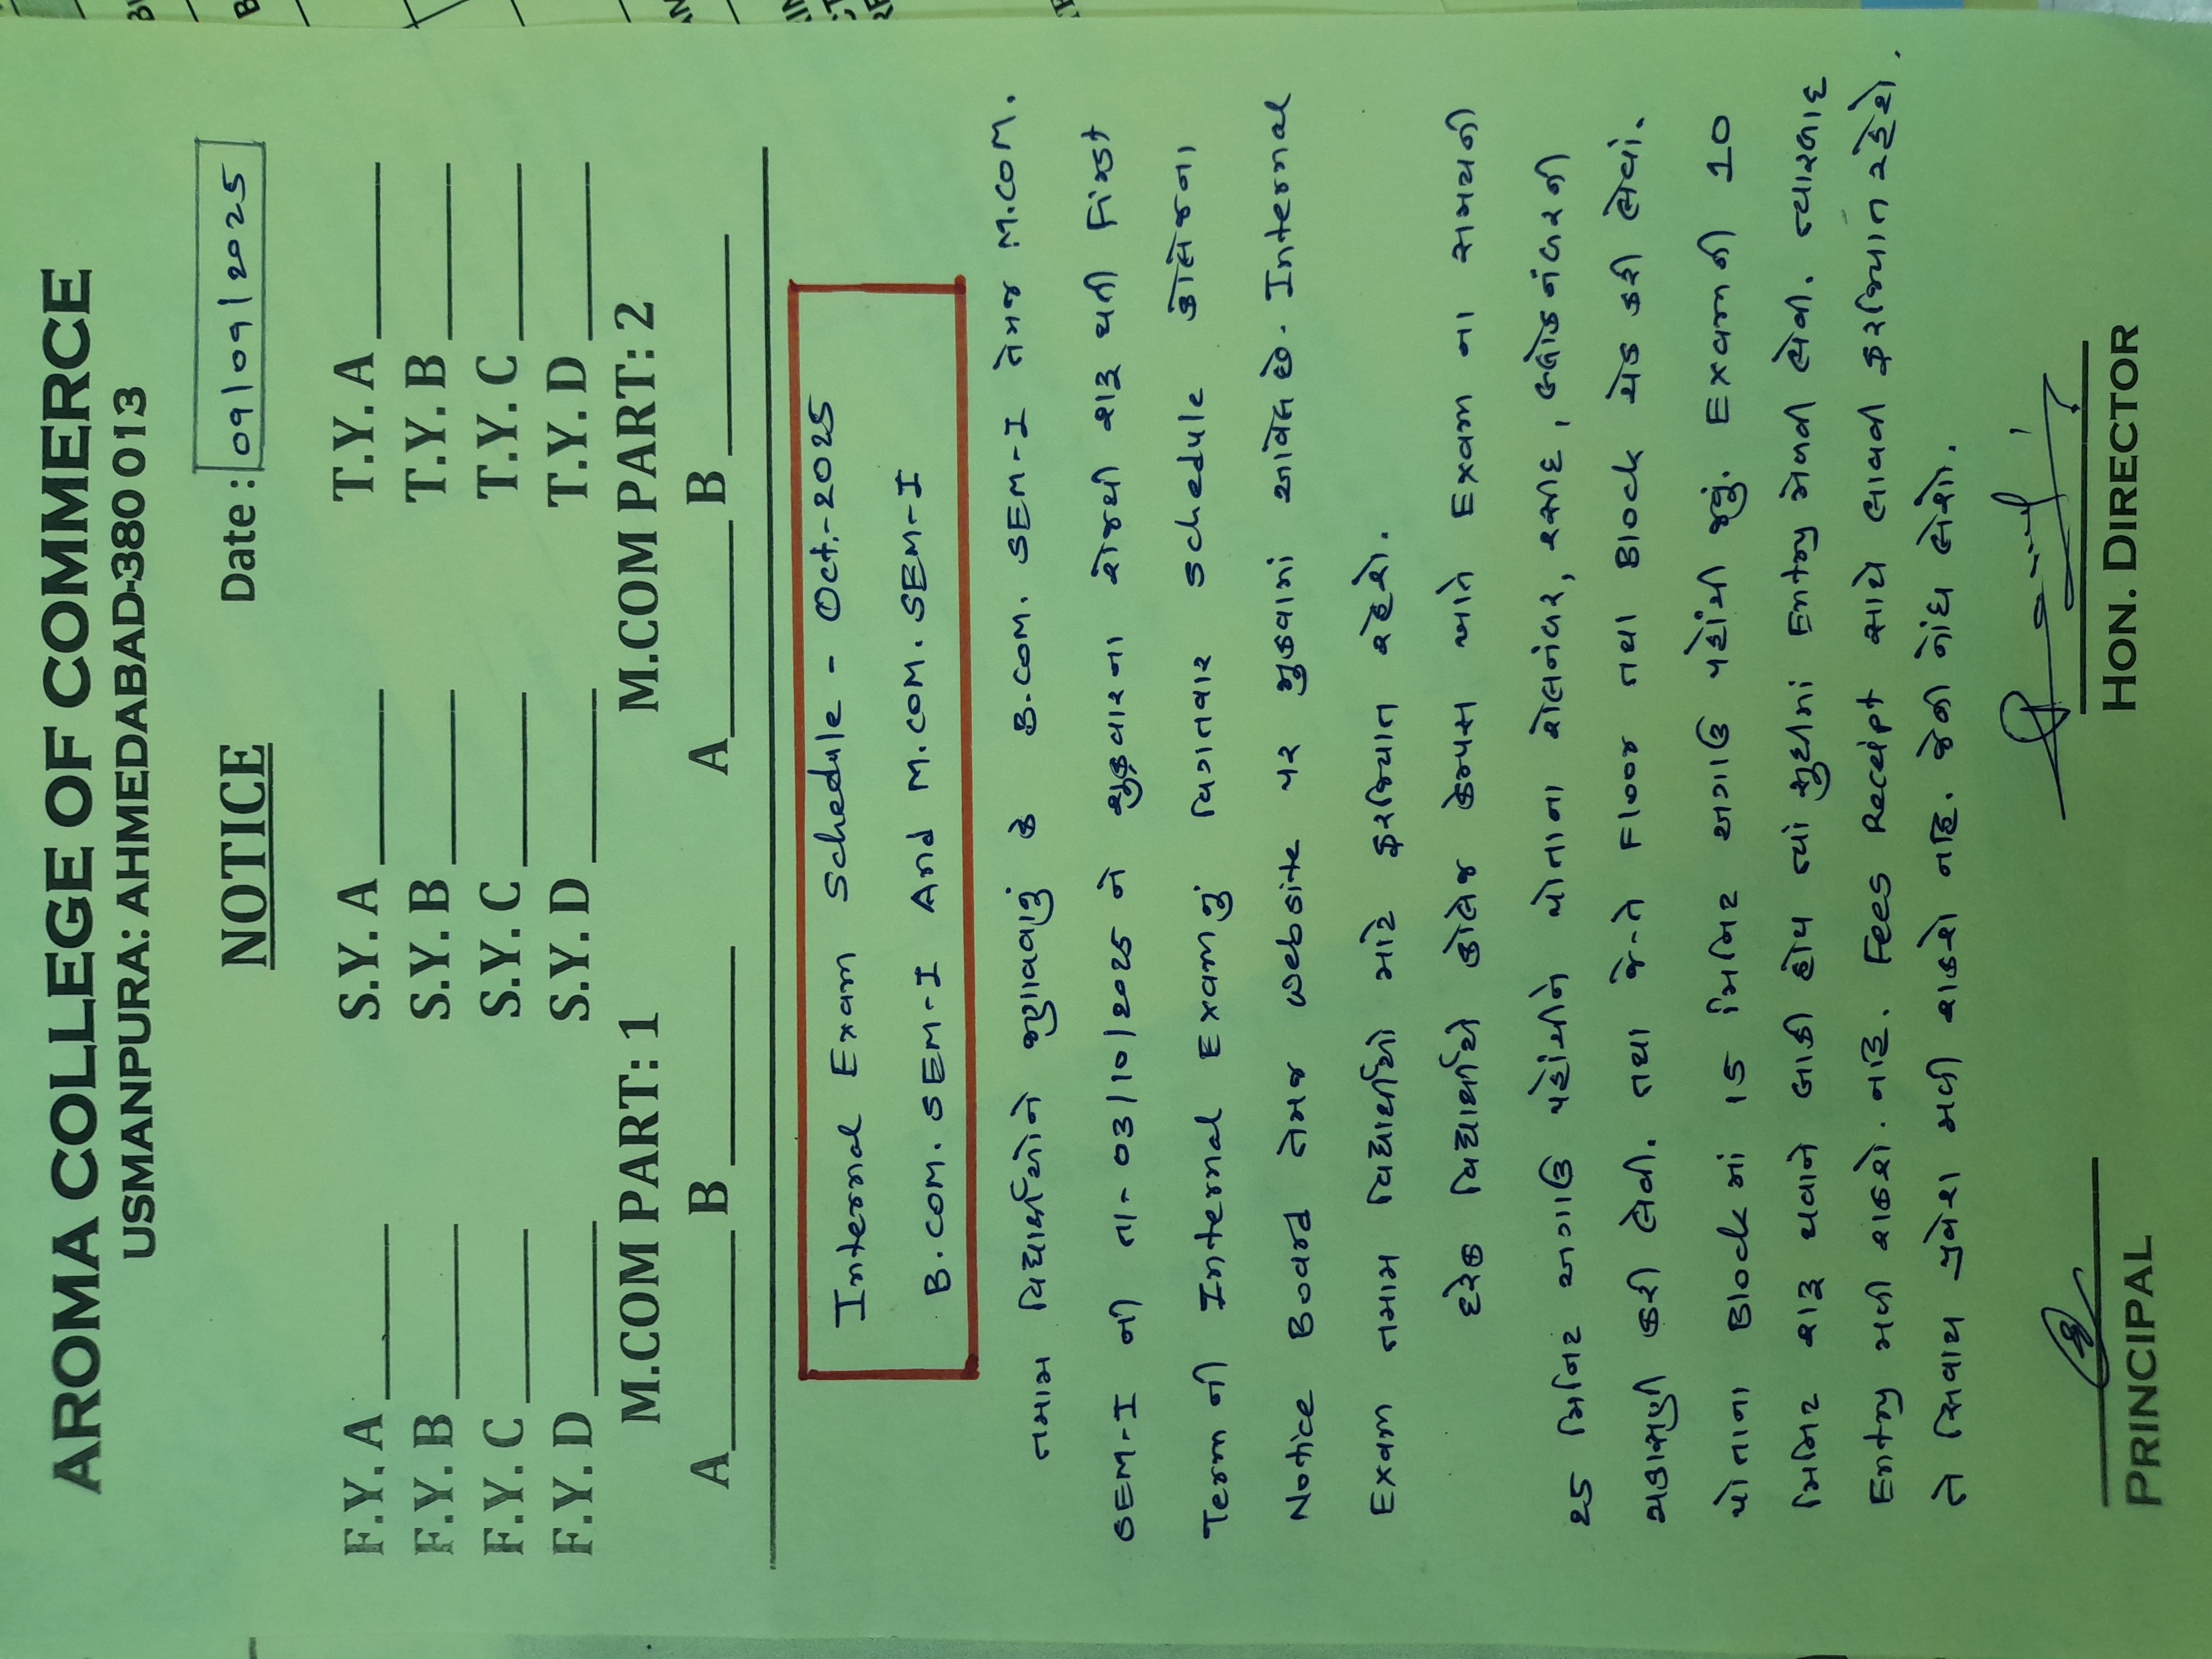 AROMA COLLEGE OF COMMERCE
USMANPURA: AHMEDABAD-380 013
NOTICE Date: 09/09/2025
F.Y. A ____ S.Y. A ____ T.Y. A ____
F.Y. B ____ S.Y. B ____ T.Y. B ____
F.Y. C ____ S.Y. C ____ T.Y. C ____
F.Y. D ____ S.Y. D ____ T.Y. D ____
M.COM PART: 1 M.COM PART: 2
A ____ B ____ A ____ B ____
Internal Exam Schedule - Oct.-2025
B.COM. SEM-I And M.COM. SEM-I
તમામ વિદ્યાર્થીઓને જણાવવાનું કે B.COM. SEM-I તેમજ M.COM.
SEM-I ની તા- 03/10/2025 ને શુક્રવારના રોજથી શરૂ થતી First
Term ની Internal Exam નું વિગતવાર Schedule કોલેજના
Notice Board તેમજ Website પર મુકવામાં આવેલ છે. Internal
Exam તમામ વિદ્યાર્થીઓ માટે ફરજિયાત રહેશે.
દરેક વિદ્યાર્થીએ કોલેજ કેમ્પસ ખાતે Exam ના સમયની
25 મિનિટ અગાઉ પહોંચીને પોતાના રોલનંબર, રસીદ, બ્લોક નંબરની
ચકાસણી કરી લેવી. તથા જે-તે Floor તથા Block ચેક કરી લેવાં.
પોતાના Block માં 15 મિનિટ અગાઉ પહોંચી જવું. Exam ની 10
મિનિટ શરૂ થવાને બાકી હોય ત્યાં સુધીમાં Entry મેળવી લેવી. ત્યારબાદ
Entry મળી શકશે નહિ. Fees Receipt સાથે લાવવી ફરજિયાત રહેશે.
તે સિવાય પ્રવેશ મળી શકશે નહિ. જેની નોંધ લેશો.
PRINCIPAL HON. DIRECTOR